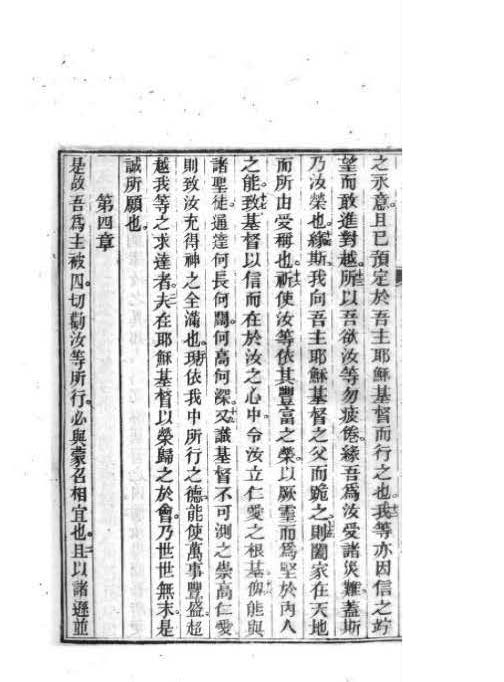 之永意。且已預定於吾主耶穌基督而行之也。十二我等亦因信之竚
望而敢進對越。十三所以吾欲汝等勿疲倦。緣吾爲汝受諸災難。蓋斯
乃汝榮也。十四緣斯我向吾主耶穌基督之父而跪之。十五則闔家在天地
而所由受稱也。十六祈使汝等依其豐富之榮。以厥靈而爲堅於內人
之能。十七致基督以信而在於汝之心中。令汝立仁愛之根基。十八俾能與
諸聖徒通達何長何闊。何高何深。十九又識基督不可測之崇高仁愛
則致汝充得神之全滿也。二十現依我中所行之德。能使萬事豐盛。超
越我等之求達者。二一夫在耶穌基督以榮歸之於會。乃世世無末。是
誠所願也。
第四章
是故吾爲主被囚。切勸汝等所行。必與蒙名相宜也。二且以諸遜並